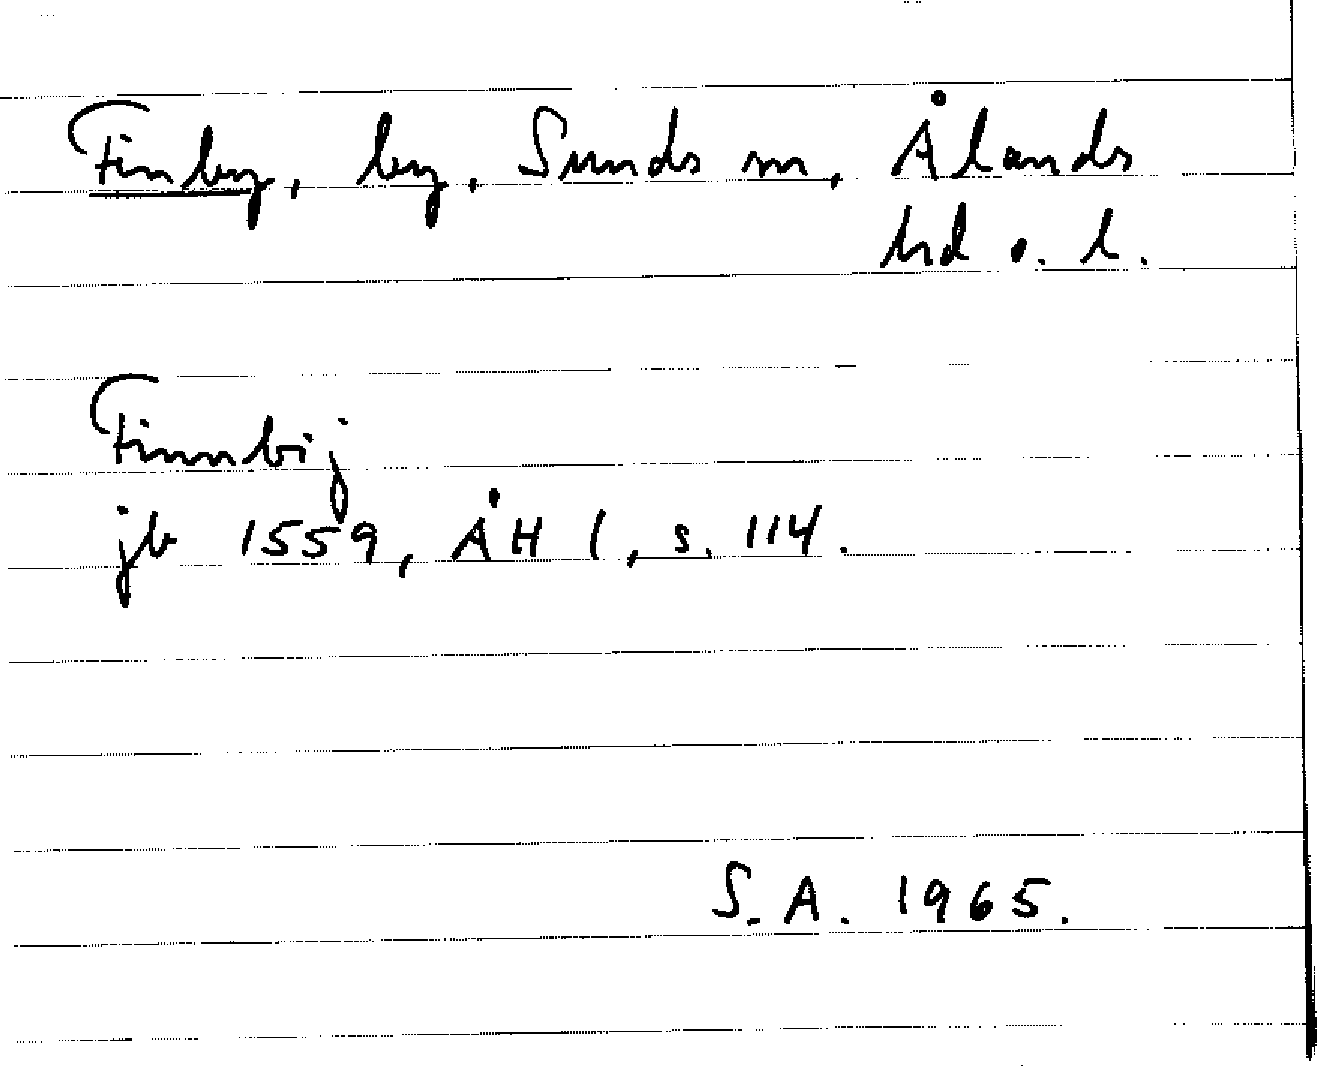 Finby, by, Sunds sn, Ålands
hd o. l.
Finnbij
jb 1559, ÅH 1, s. 114.
S.A. 1965.